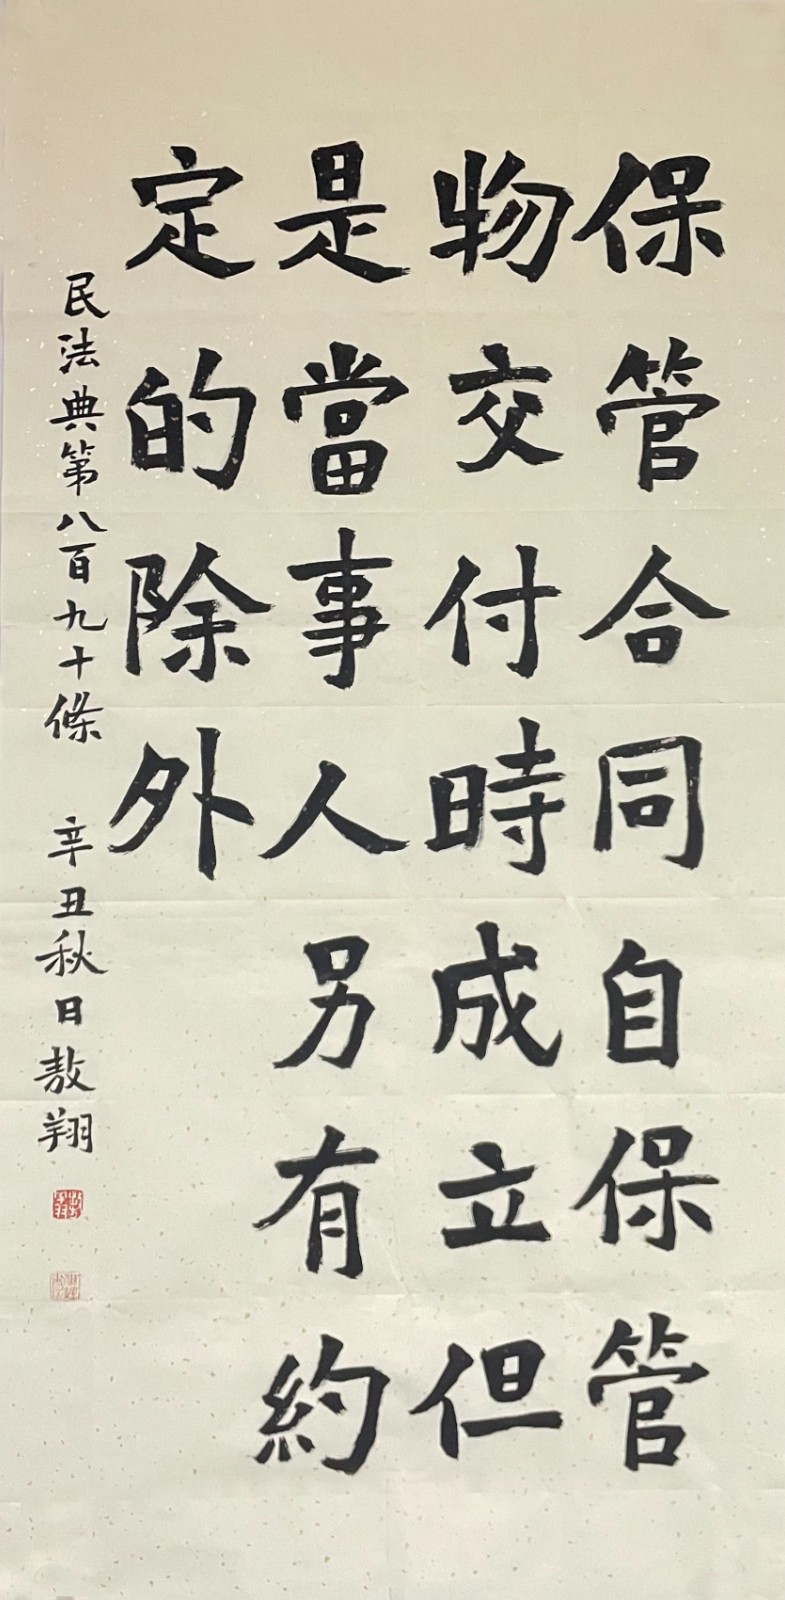 保管合同自保管
物交付時成立但
是當事人另有約
定的除外
民法典第八百九十條 辛丑秋日敖翔